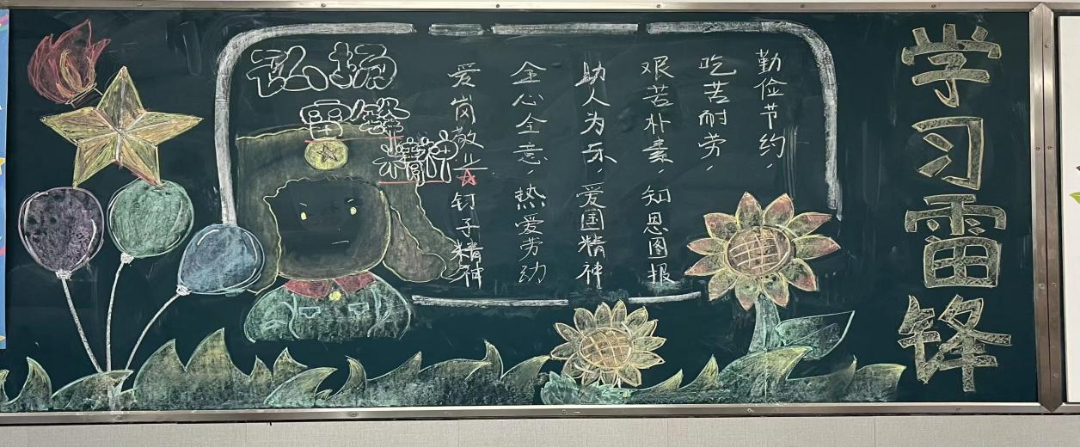 学习雷锋
弘扬
雷锋
精神
勤俭节约，
吃苦耐劳，
艰苦朴素，知恩图报
助人为乐，爱国精神
全心全意，热爱劳动
爱岗敬业☆钉子精神